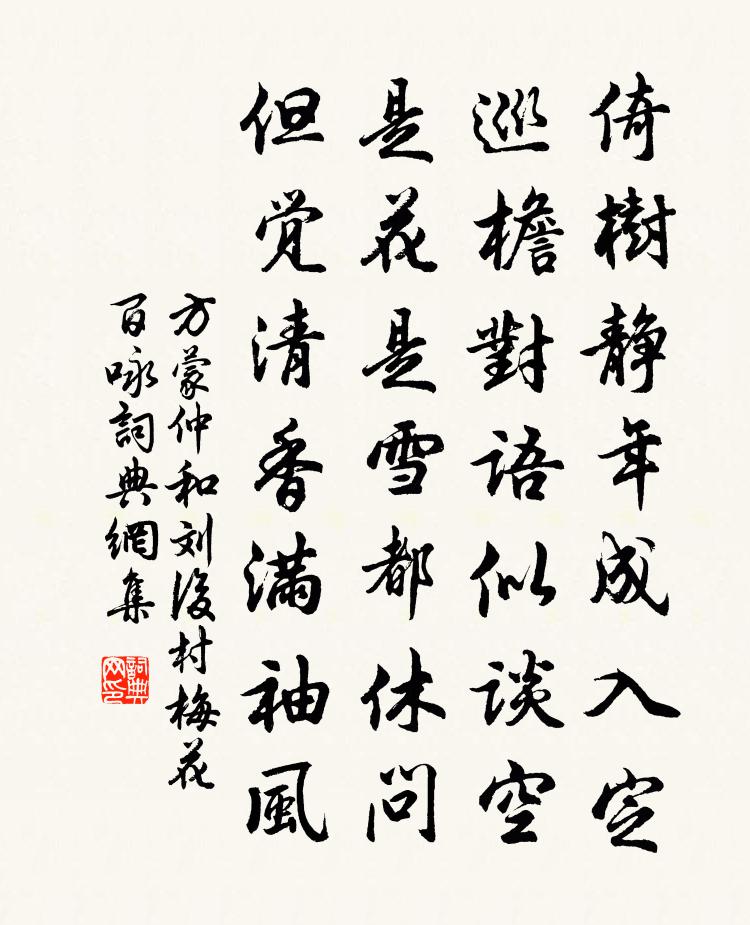 倚樹静年成入定
巡檐對語似谈空
是花是雪都休问
但觉清香滿袖風
方蒙仲和刘後村梅花
百咏詞典網集
詞典网印